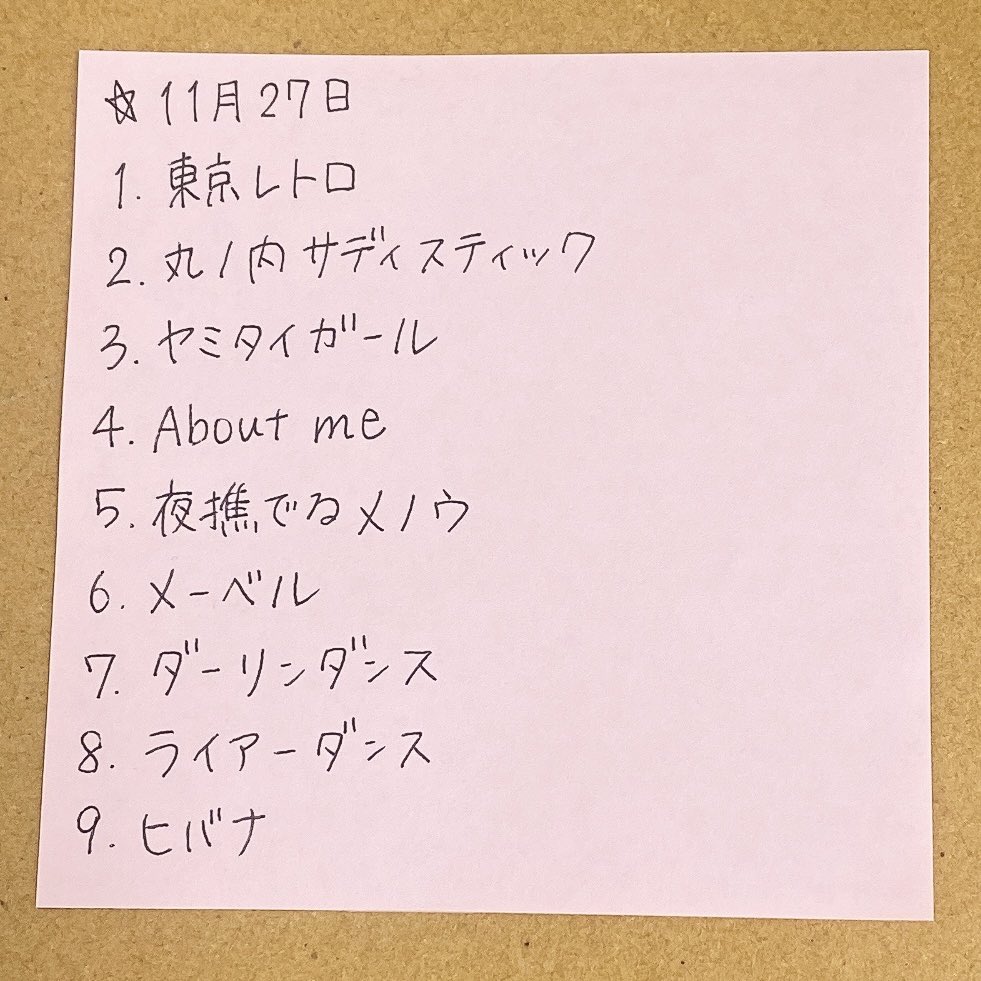 ☆11月27日
1. 東京レトロ
2. 丸ノ内サディスティック
3. ヤミタイガール
4. About me
5.夜撫でるメノウ
6. メーベル
7. ダーリンダンス
8. ライアーダンス
9. ヒバナ